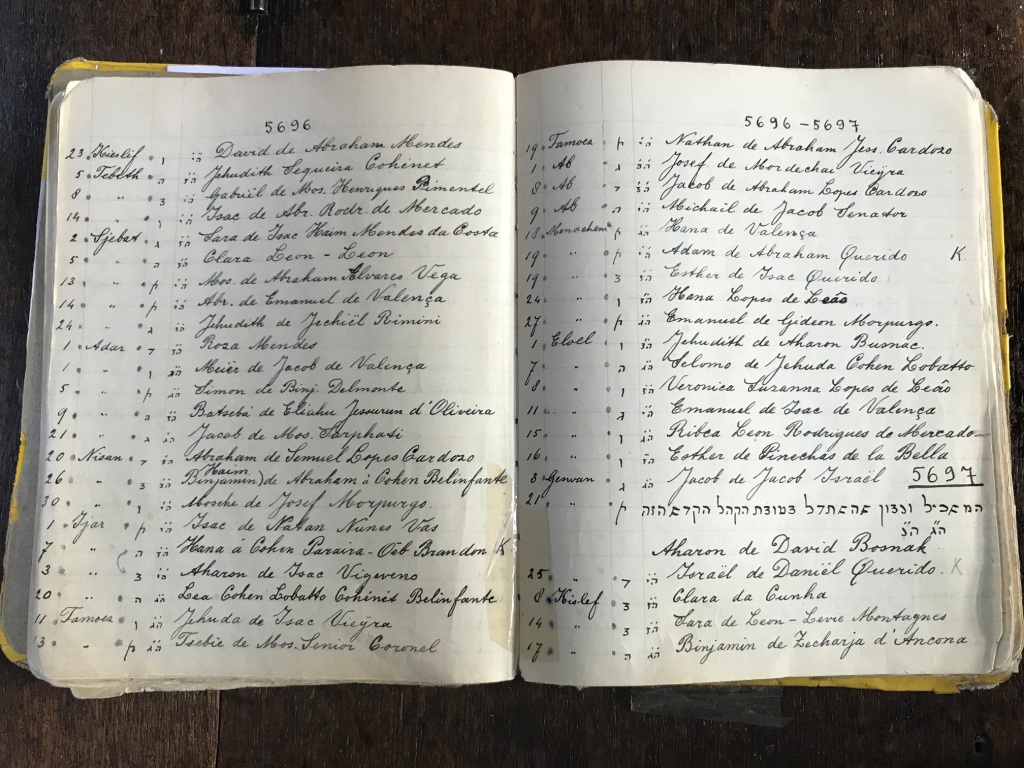 5696
23 Kieslef ו הי David de Abraham Mendes
5 Tebeth ה הצ Jehudith Sequeira Cohinet
8 " " ג הי Gabriël de Mos. Henriques Pimentel
14 " " ו הי Isac de Abr. Rodr. de Mercado
2 Sjebat ג הצ Sara de Isac Haim Mendes da Costa
5 " " ה הצ Clara Leon - Leon
13 " " ק הי Mos. de Abraham Alvares Vega
14 " " ק הי Abr. de Emanuel de Valença
24 " " ג הצ Jehudith de Jechiël Rimini
1 Adar ד הצ Roza Mendes
1 " " ו הג Meïer de Jacob de Valença
5 " " ק הי Simon de Binj. Delmonte
9 " " ה הצ Batsebá de Eliahu Jessurun d'Oliveira
21 " " ג הג Jacob de Mos. Sarphati
20 Nisan ד הי Abraham de Semuel Lopes Cardozo
26 " " ג הי Haim Binjamin) de Abraham á Cohen Belinfante
30 " " ו הי Mosche de Josef Morpurgo
1 Ijar ק הי Isac de Natan Nunes Vas
7 " " הצ Hana á Cohen Paraira - Oëb Brandon K
3 " " ג הי Aharon de Isac Vigeveno
20 " " ה הצ Lea Cohen Lobatto Cohenit Belinfante
11 Tamoez ו הג Jehuda de Isac Vieÿra
13 " " ק הג Tsebie de Mos. Senior Coronel
5696-5697
19 Tamoez ק הי Nathan de Abraham Jess. Cardozo
1 Ab ג הצ Josef de Mordechai Vieÿra
8 Ab ד הצ Jacob de Abraham Lopes Cardozo
9 Ab ה הי Michaïl de Jacob Senator
18 Menachem ק הצ Hana de Valença
19 " " ק הי Adam de Abraham Querido K
19 " " ג הצ Esther de Isac Querido
24 " " ו הצ Hana Lopes de Leão
27 " " ק הי Emanuel de Gideon Morpurgo.
1 Eloel ו הצ Jehudith de Aharon Busnac.
7 " " ק הצ Selomo de Jehuda Cohen Lobatto
8 " " ו הצ Veronica Suzanna Lopes de Leão
11 " " ג הצ Emanuel de Isac de Valença
15 " " ו הצ Ribca Leon Rodrigues de Mercado
16 " " ו הצ Esther de Pineches de la Bella
8 Geswan ג הי Jacob de Jacob Israël 5697
21 " ק המאכיל
הג הצ Aharon de David Bosnak
25 " " ד הי Israël de Daniël Querido. K
8 Kislef ג הצ Clara da Cunha
14 " " ג הצ Sara de Leon - Levie Montagnes
17 " " ה הג Binjamin de Zecharja d'Ancona